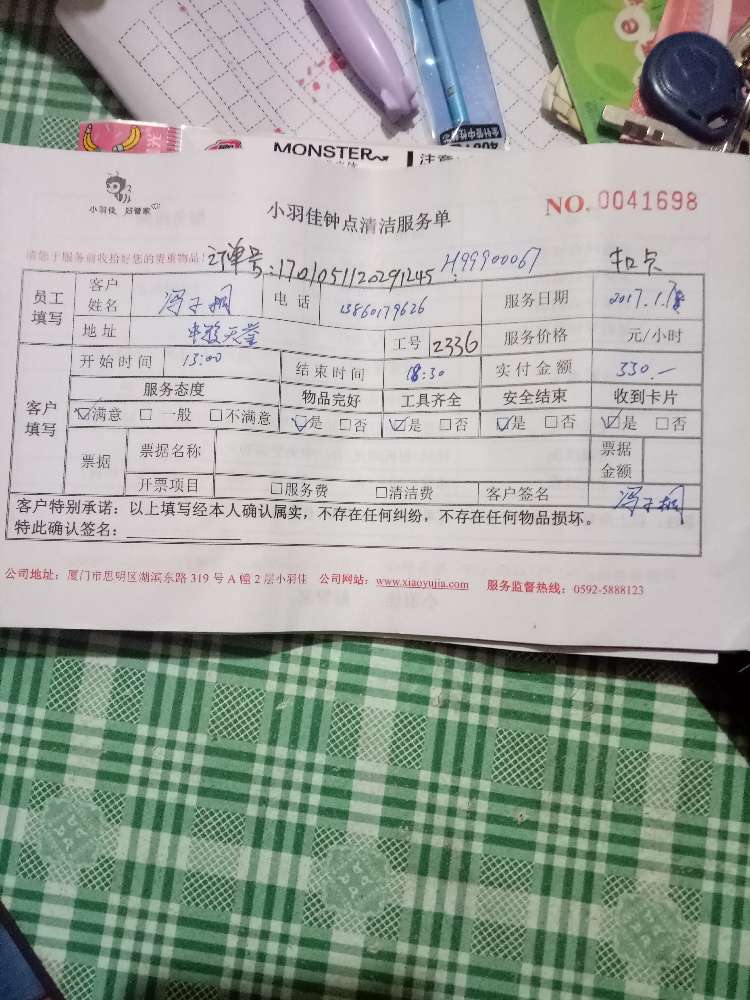 MONSTER
注意
小羽佳 好管家
小羽佳钟点清洁服务单
NO. 0041698
请您于服务前收拾好您的贵重物品!
订单号:1701051120291245
H99900067
扣点
员工填写
客户姓名
冯子桐
电话
13860179626
服务日期
地址
工号
2336
服务价格
元/小时
客户填写
开始时间
13:00
结束时间
18:30
实付金额
330.—
服务态度
物品完好
工具齐全
安全结束
收到卡片
☑满意 □一般 □不满意
☑是 □否
☑是 □否
☑是 □否
☑是 □否
票据
票据名称
票据金额
开票项目
□服务费 □清洁费
客户签名
冯子桐
客户特别承诺:以上填写经本人确认属实,不存在任何纠纷,不存在任何物品损坏。
特此确认签名:
公司地址:厦门市思明区湖滨东路 319 号 A 幢 2 层小羽佳 公司网站:www.xiaoyujia.com 服务监督热线:0592-5888123